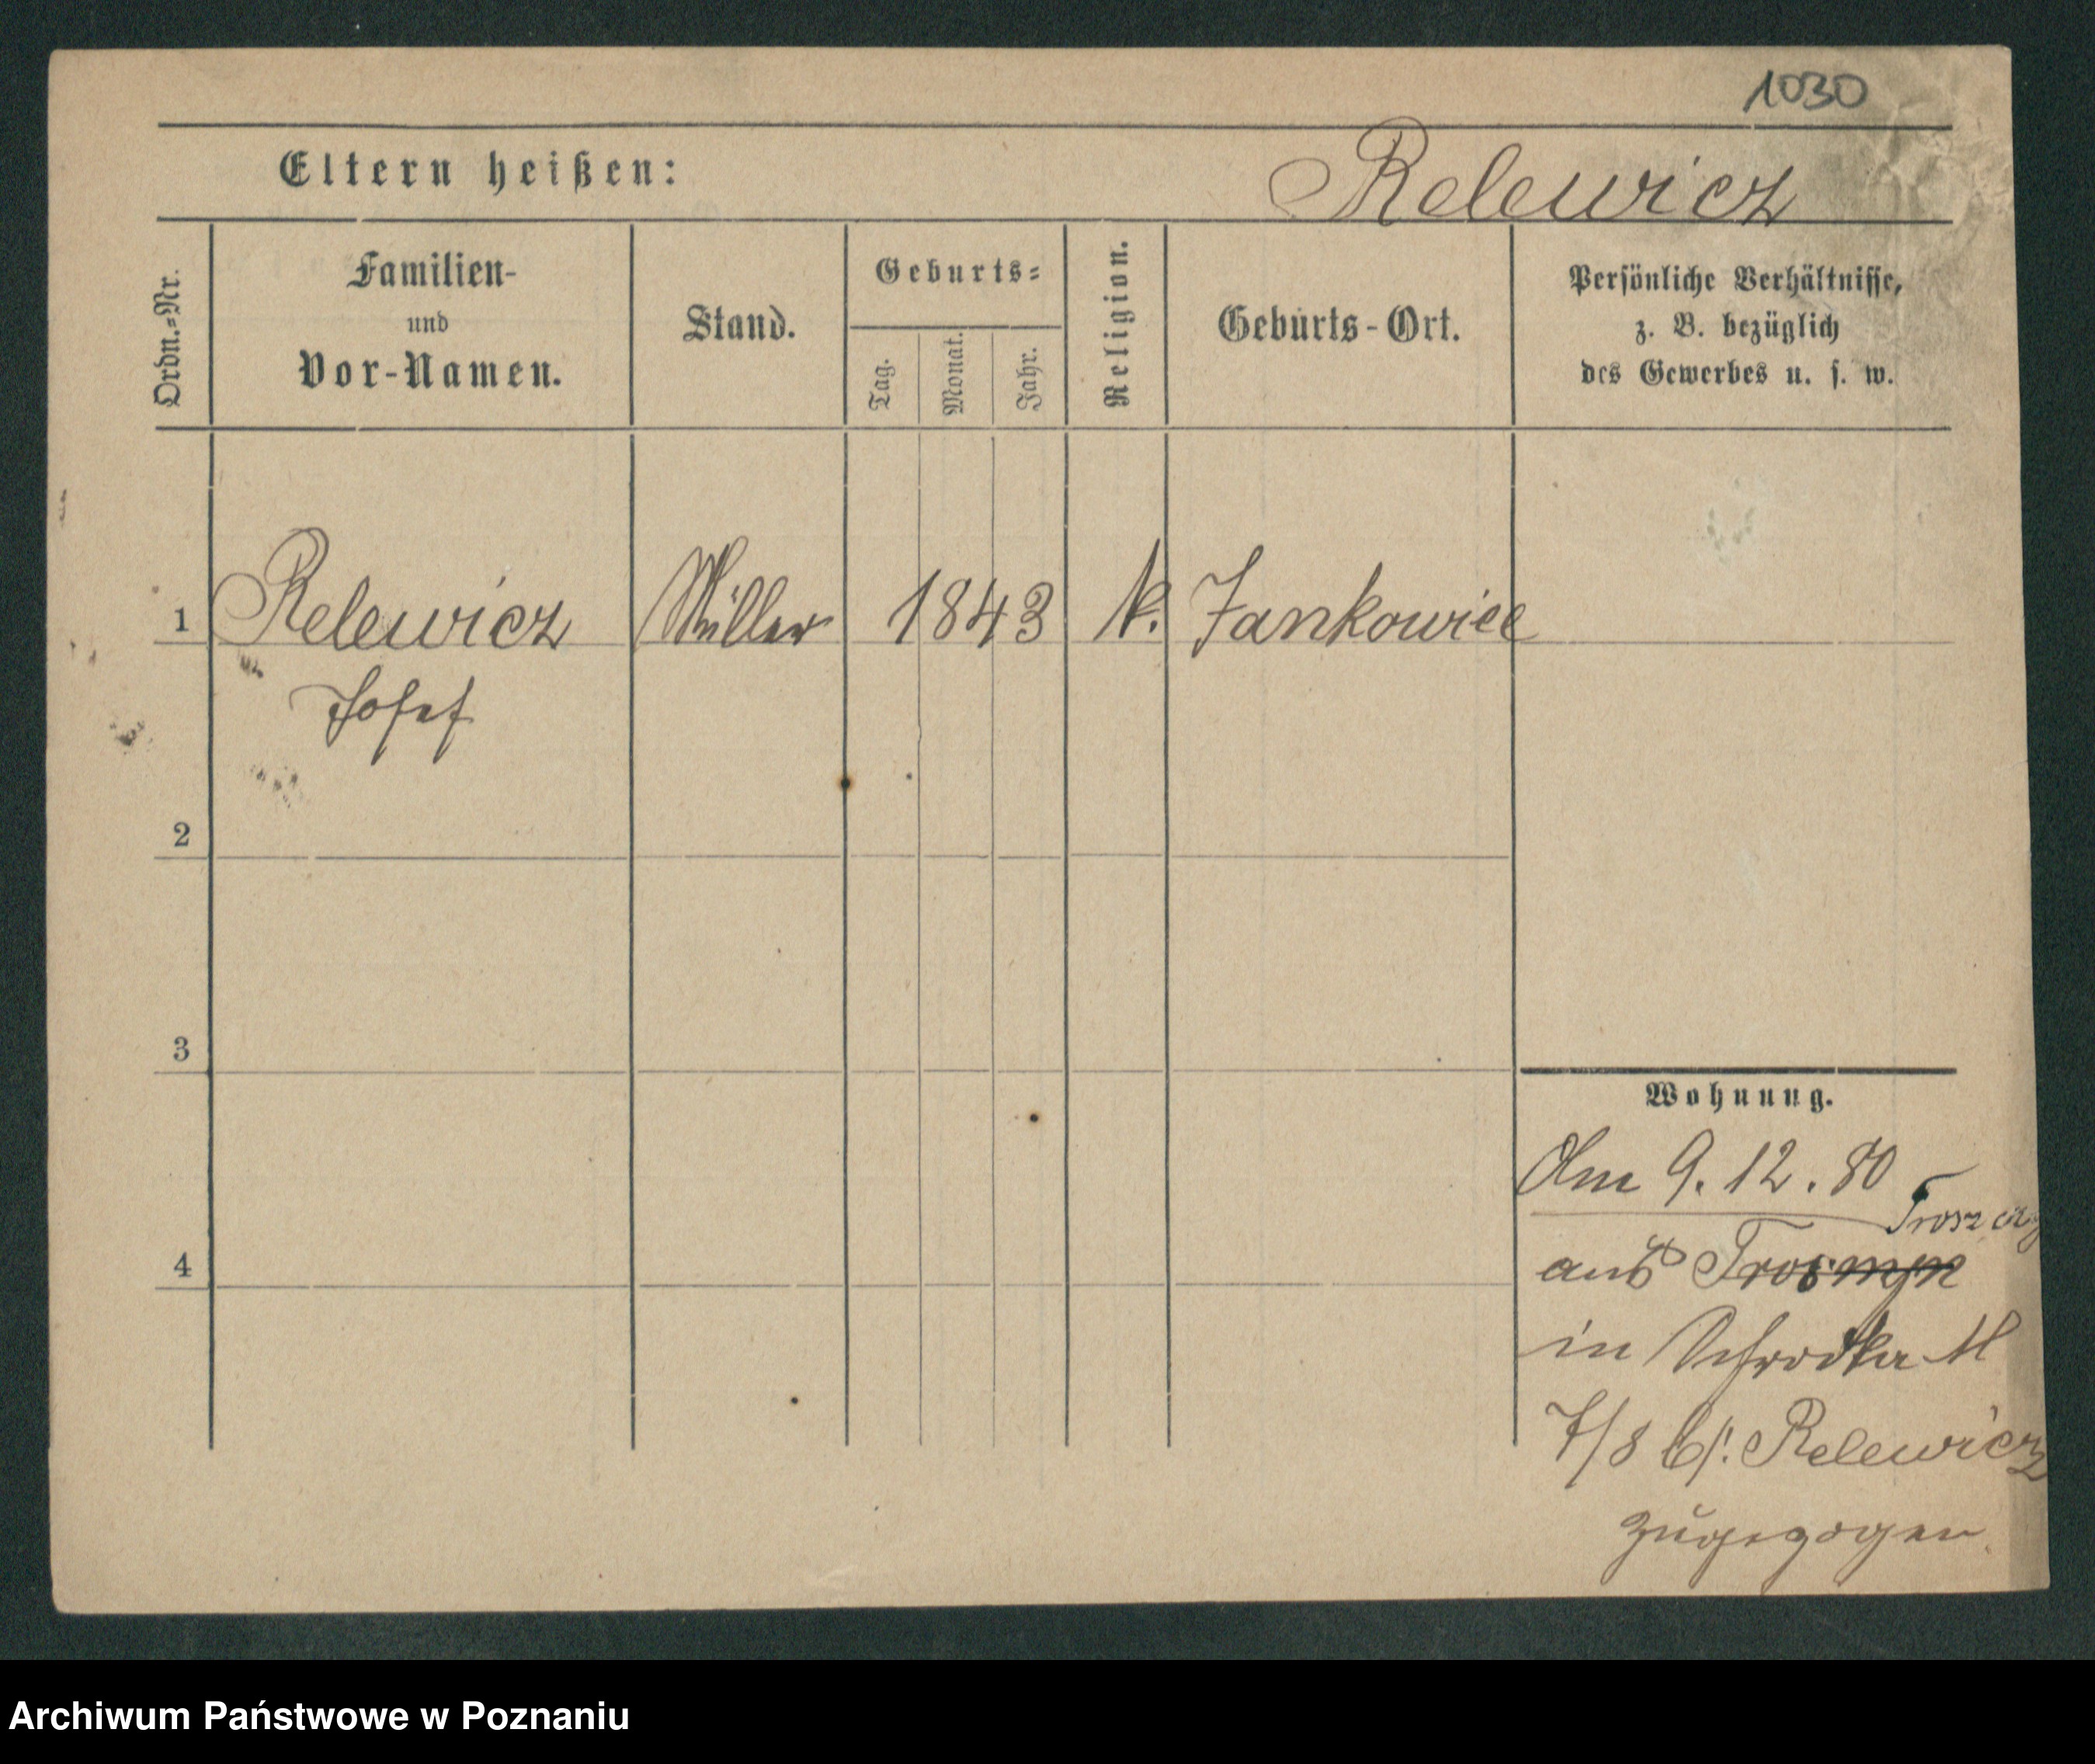 1030
Eltern heißen: Relewicz
Ordn.-Nr.
Familien-
und
Vor-Namen.
Stand.
Geburts-
Tag.
Monat.
Jahr.
Religion.
Geburts-Ort.
Persönliche Verhältnisse,
z. B. bezüglich
des Gewerbes u. s. w.
1 Relewicz Müller 1843 k. Jankowice
Josef
2
3
Wohnung.
Am 9. 12. 80
aus
4
in Schrodka M
7/8 b/: Relewicz
zugezogen
Archiwum Państwowe w Poznaniu